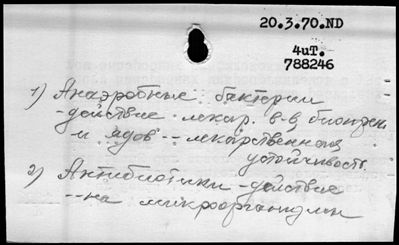 20.3.70.ND
4иТ.
788246
1) Анаэробные бактерии
-действие лекар. в-в, биоген.
и ядов -- лекарственная
устойчивость
2) Антибиотики - действие
-- на микроорганизмы